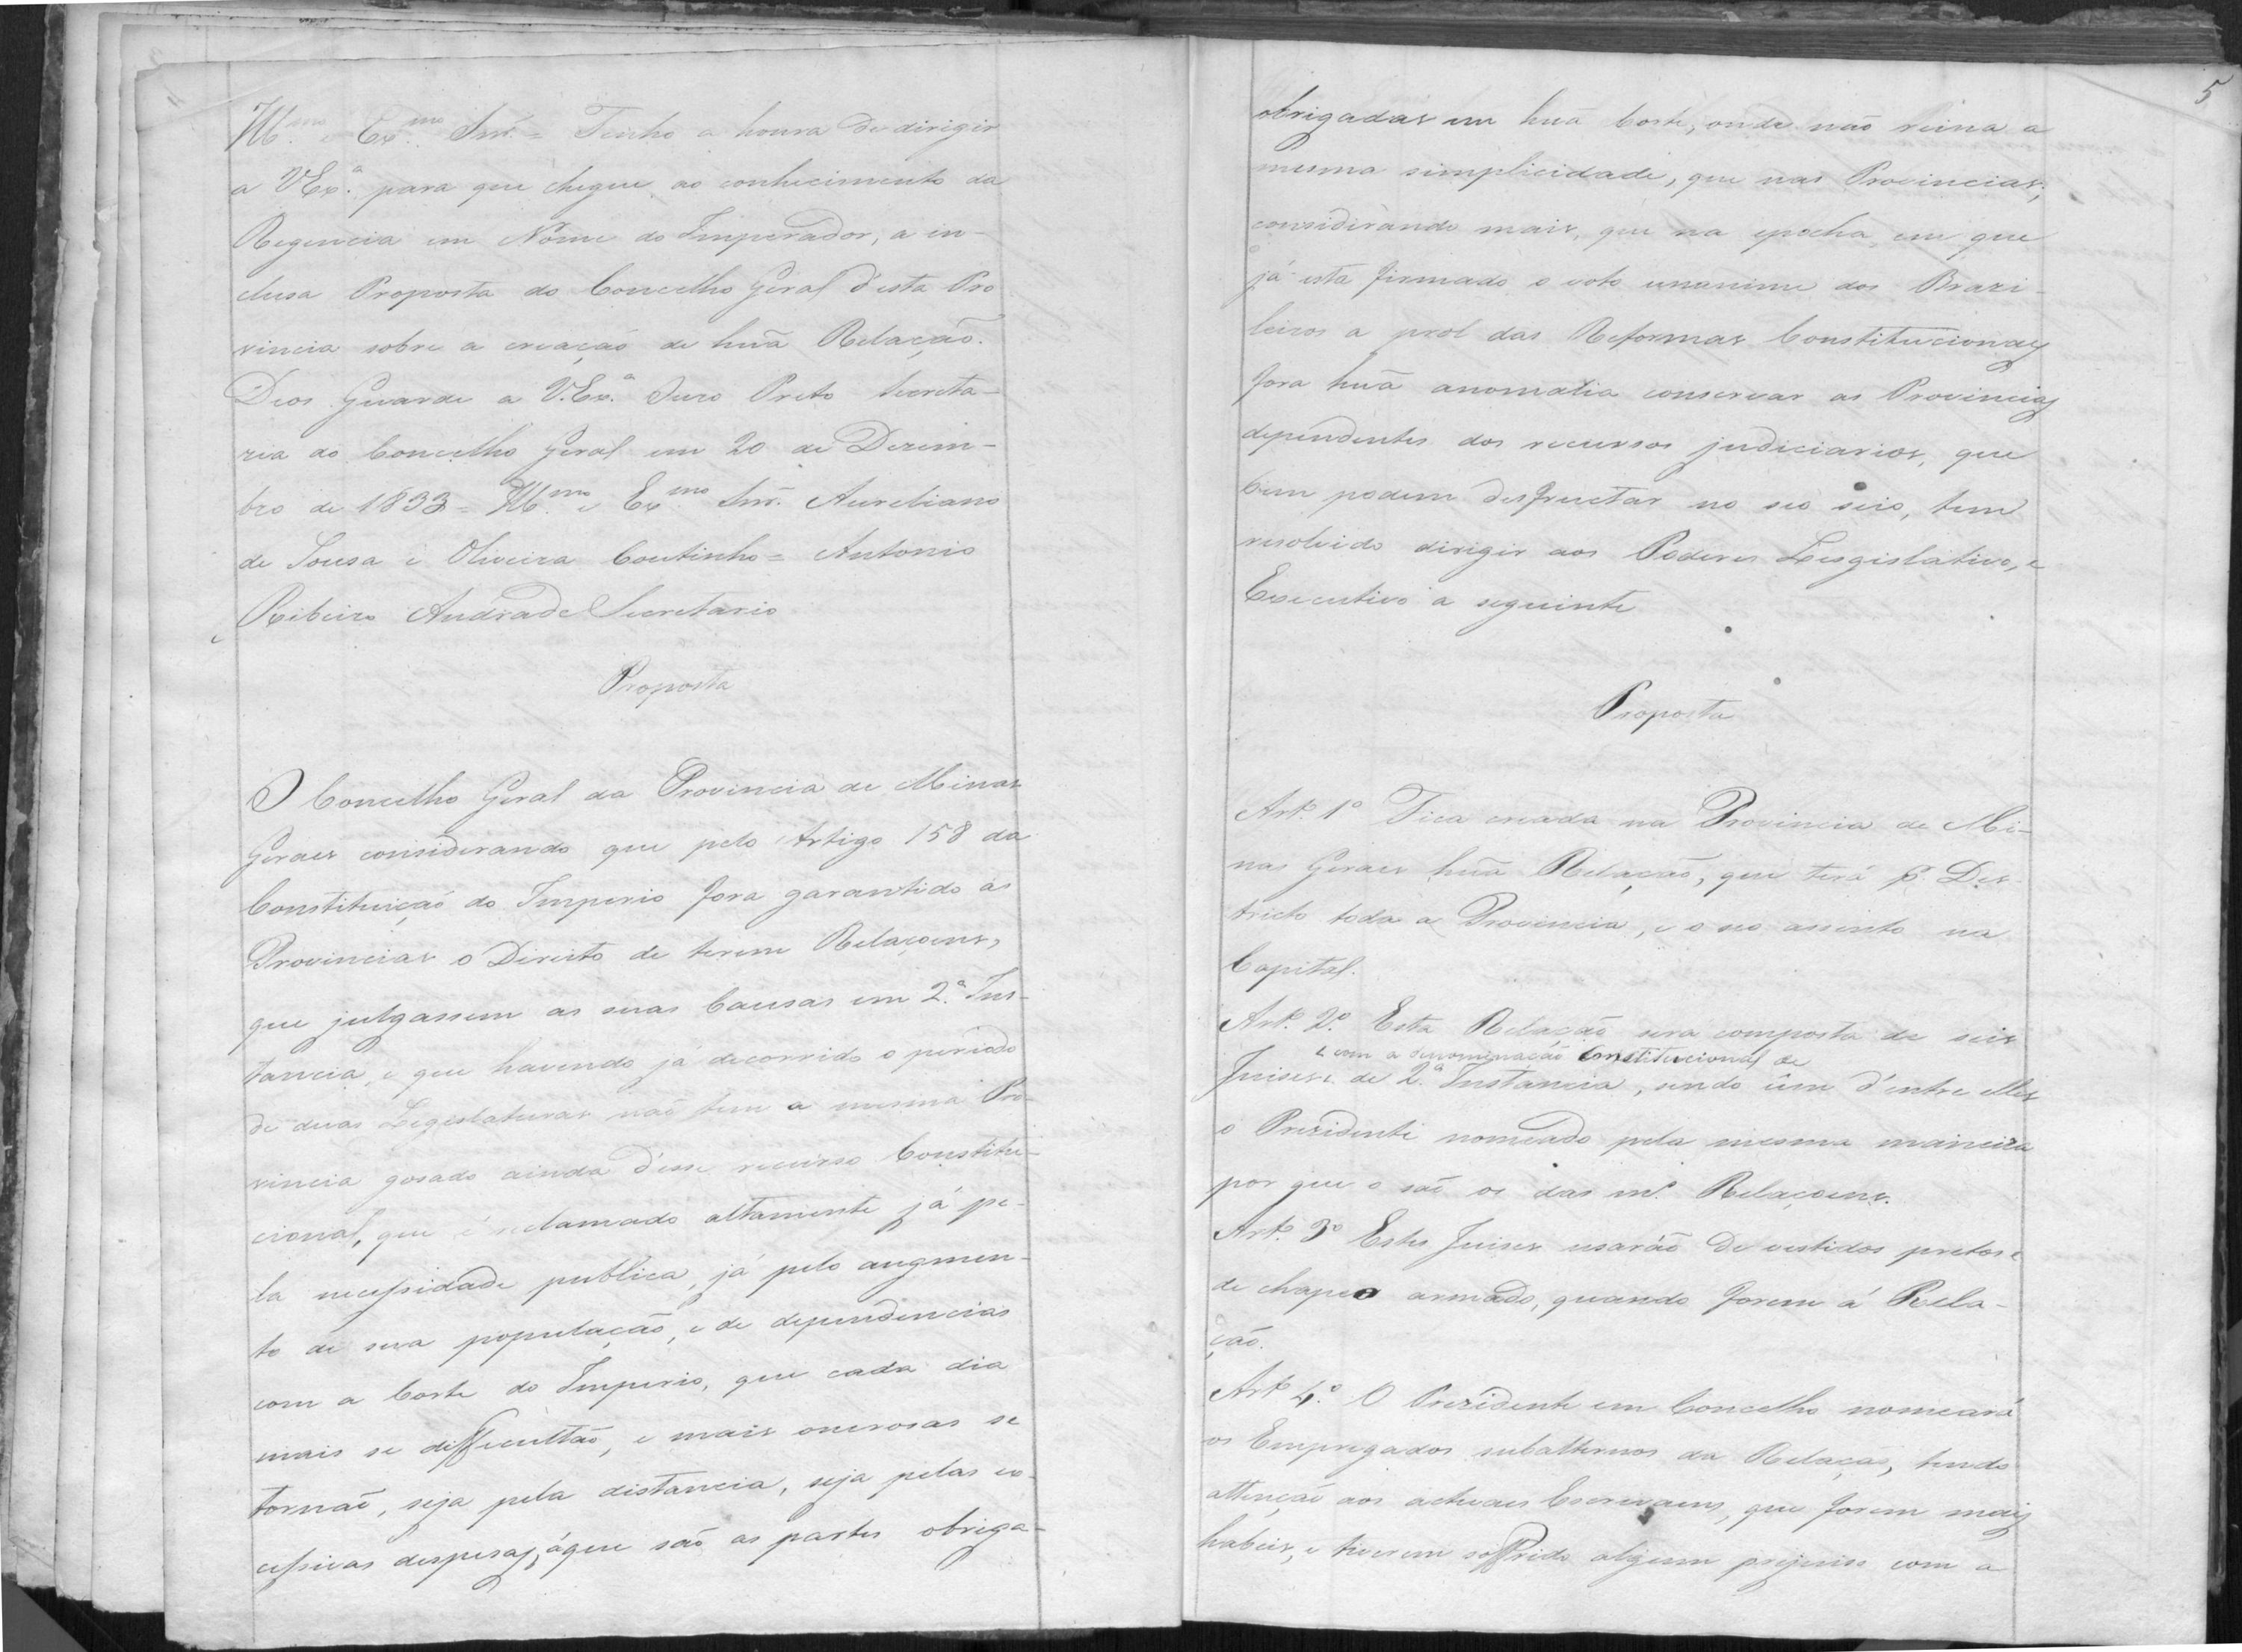 Ill.mo e Ex.mo Snr. = Tenho a honra de dirigir
a VEx.a para que chegue ao conhecimento da
Regencia em Nome do Imperador, a in-
clusa Proposta do Concelho Geral d'esta Pro
vincia sobre a creação de huã Relação.
Deos Guarde a V.Ex.a Ouro Preto Secreta-
ria do Concelho Geral em 20 de Dezem-
bro de 1833 = Ill.mo e Ex.mo Snr. Aureliano
de Sousa e Oliveira Coutinho = Antonio
Ribeiro Andrade Secretario
Proposta
O Concelho Geral da Provincia de Minas
Geraes considerando que pelo Artigo 158 da
Constituição do Imperio fora garantido ás
Provincias o Direito de terem Relaçoens,
que julgassem as suas Causas em 2.a Ins-
tancia, e que havendo já decorrido o periodo
de duas Legislaturas não tem a mesma Pro-
vincia gosado ainda d'esse recurso Constitu-
cional, que é reclamado altamente já pe-
la necessidade publica, já pelo augmen-
to de sua população, e de dependencias
com a Corte do Imperio, que cada dia
mais se difficultão, e mais onerosas se
tornão, seja pela distancia, seja pelas ex-
cessivas despesas, áque são as partes obriga-
5
obrigadas em huã Corte, onde não reina a
mesma simplicidade, que nas Provincias,
considerando mais, que na epocha em que
já está firmado o voto unanime dos Brazi-
leiros a prol das Reformas Constitucionaes
fora huã anomalia conservar as Provincias
dependentes dos recursos judiciarios, que
bem podem desfructar no seo seio, tem
resolvido dirigir aos Poderes Lesgislativo, e
Executivo a seguinte
Proposta
Art.o 1o Fica creada na Provincia de Mi-
nas Geraes huã Relação, que terá p.r Des-
tricto toda a Provincia, e o seo assento na
Capital.
Art.o 2.o Esta Relação sera composta de seis
com a denominação Constitucional de
Juises de 2.a Instancia, sendo um d'entre elles
o Prezidente nomeado pela mesma maneira
por que o são os das m.s Relaçoens.
Art.o 3o Estes Juises usarão de vestidos pretos e
de chapeo armado, quando forem á Rela-
ção.
Art.o 4.o O Prezidente em Concelho nomeará
os Empregados subalternos da Relação, tendo
attenção aos actuaes Escrivaens, que forem mais
habeis, e tiverem soffrido algum prejuiso com a